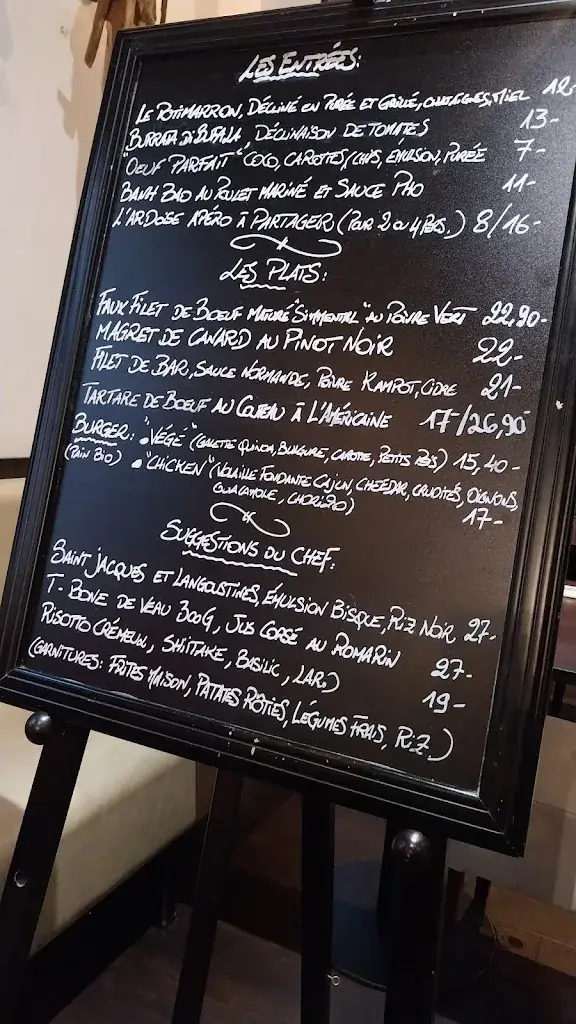 LES ENTRÉES:
LE POTIMARRON, DÉCLINÉ EN PURÉE ET GRILLÉ, CHATAIGNES, MIEL 12-
BURRATA DI BUFALA DÉCLINAISON DE TOMATES 13-
"OEUF PARFAIT" COCO, CAROTTES (CHIPS, ÉMULSION, PURÉE 7-
BANH BAO AU POULET MARINÉ ET SAUCE PHO 11-
L'ARDOISE APÉRO À PARTAGER (POUR 2 OU 4 PERS.) 8/16-
LES PLATS:
FAUX FILET DE BOEUF MATURÉ "SIMMENTAL" AU POIVRE VERT 22,90-
MAGRET DE CANARD AU PINOT NOIR 22-
FILET DE BAR, SAUCE NORMANDE, POIVRE KAMPOT, CIDRE 21-
TARTARE DE BOEUF AU COUTEAU À L'AMÉRICAINE 17/26,90
BURGER: • "VÉGÉ" (GALETTE QUINOA, BULGURE, CAROTTE, PETITS POIS) 15,40-
(PAIN BIO) • "CHICKEN" (VOLAILLE FONDANTE CAJUN, CHEDDAR, CRUDITÉS, OIGNONS,
GUACAMOLE, CHORIZO) 17-
SUGGESTIONS DU CHEF:
SAINT JACQUES ET LANGOUSTINES, ÉMULSION BISQUE, RIZ NOIR 27-
T-BONE DE VEAU 300G, JUS CORSÉ AU ROMARIN 27-
RISOTTO CRÉMEUX, SHIITAKE, BASILIC, LARD 19-
(GARNITURES: FRITES MAISON, PATATES RÔTIES, LÉGUMES FRAIS, RIZ)